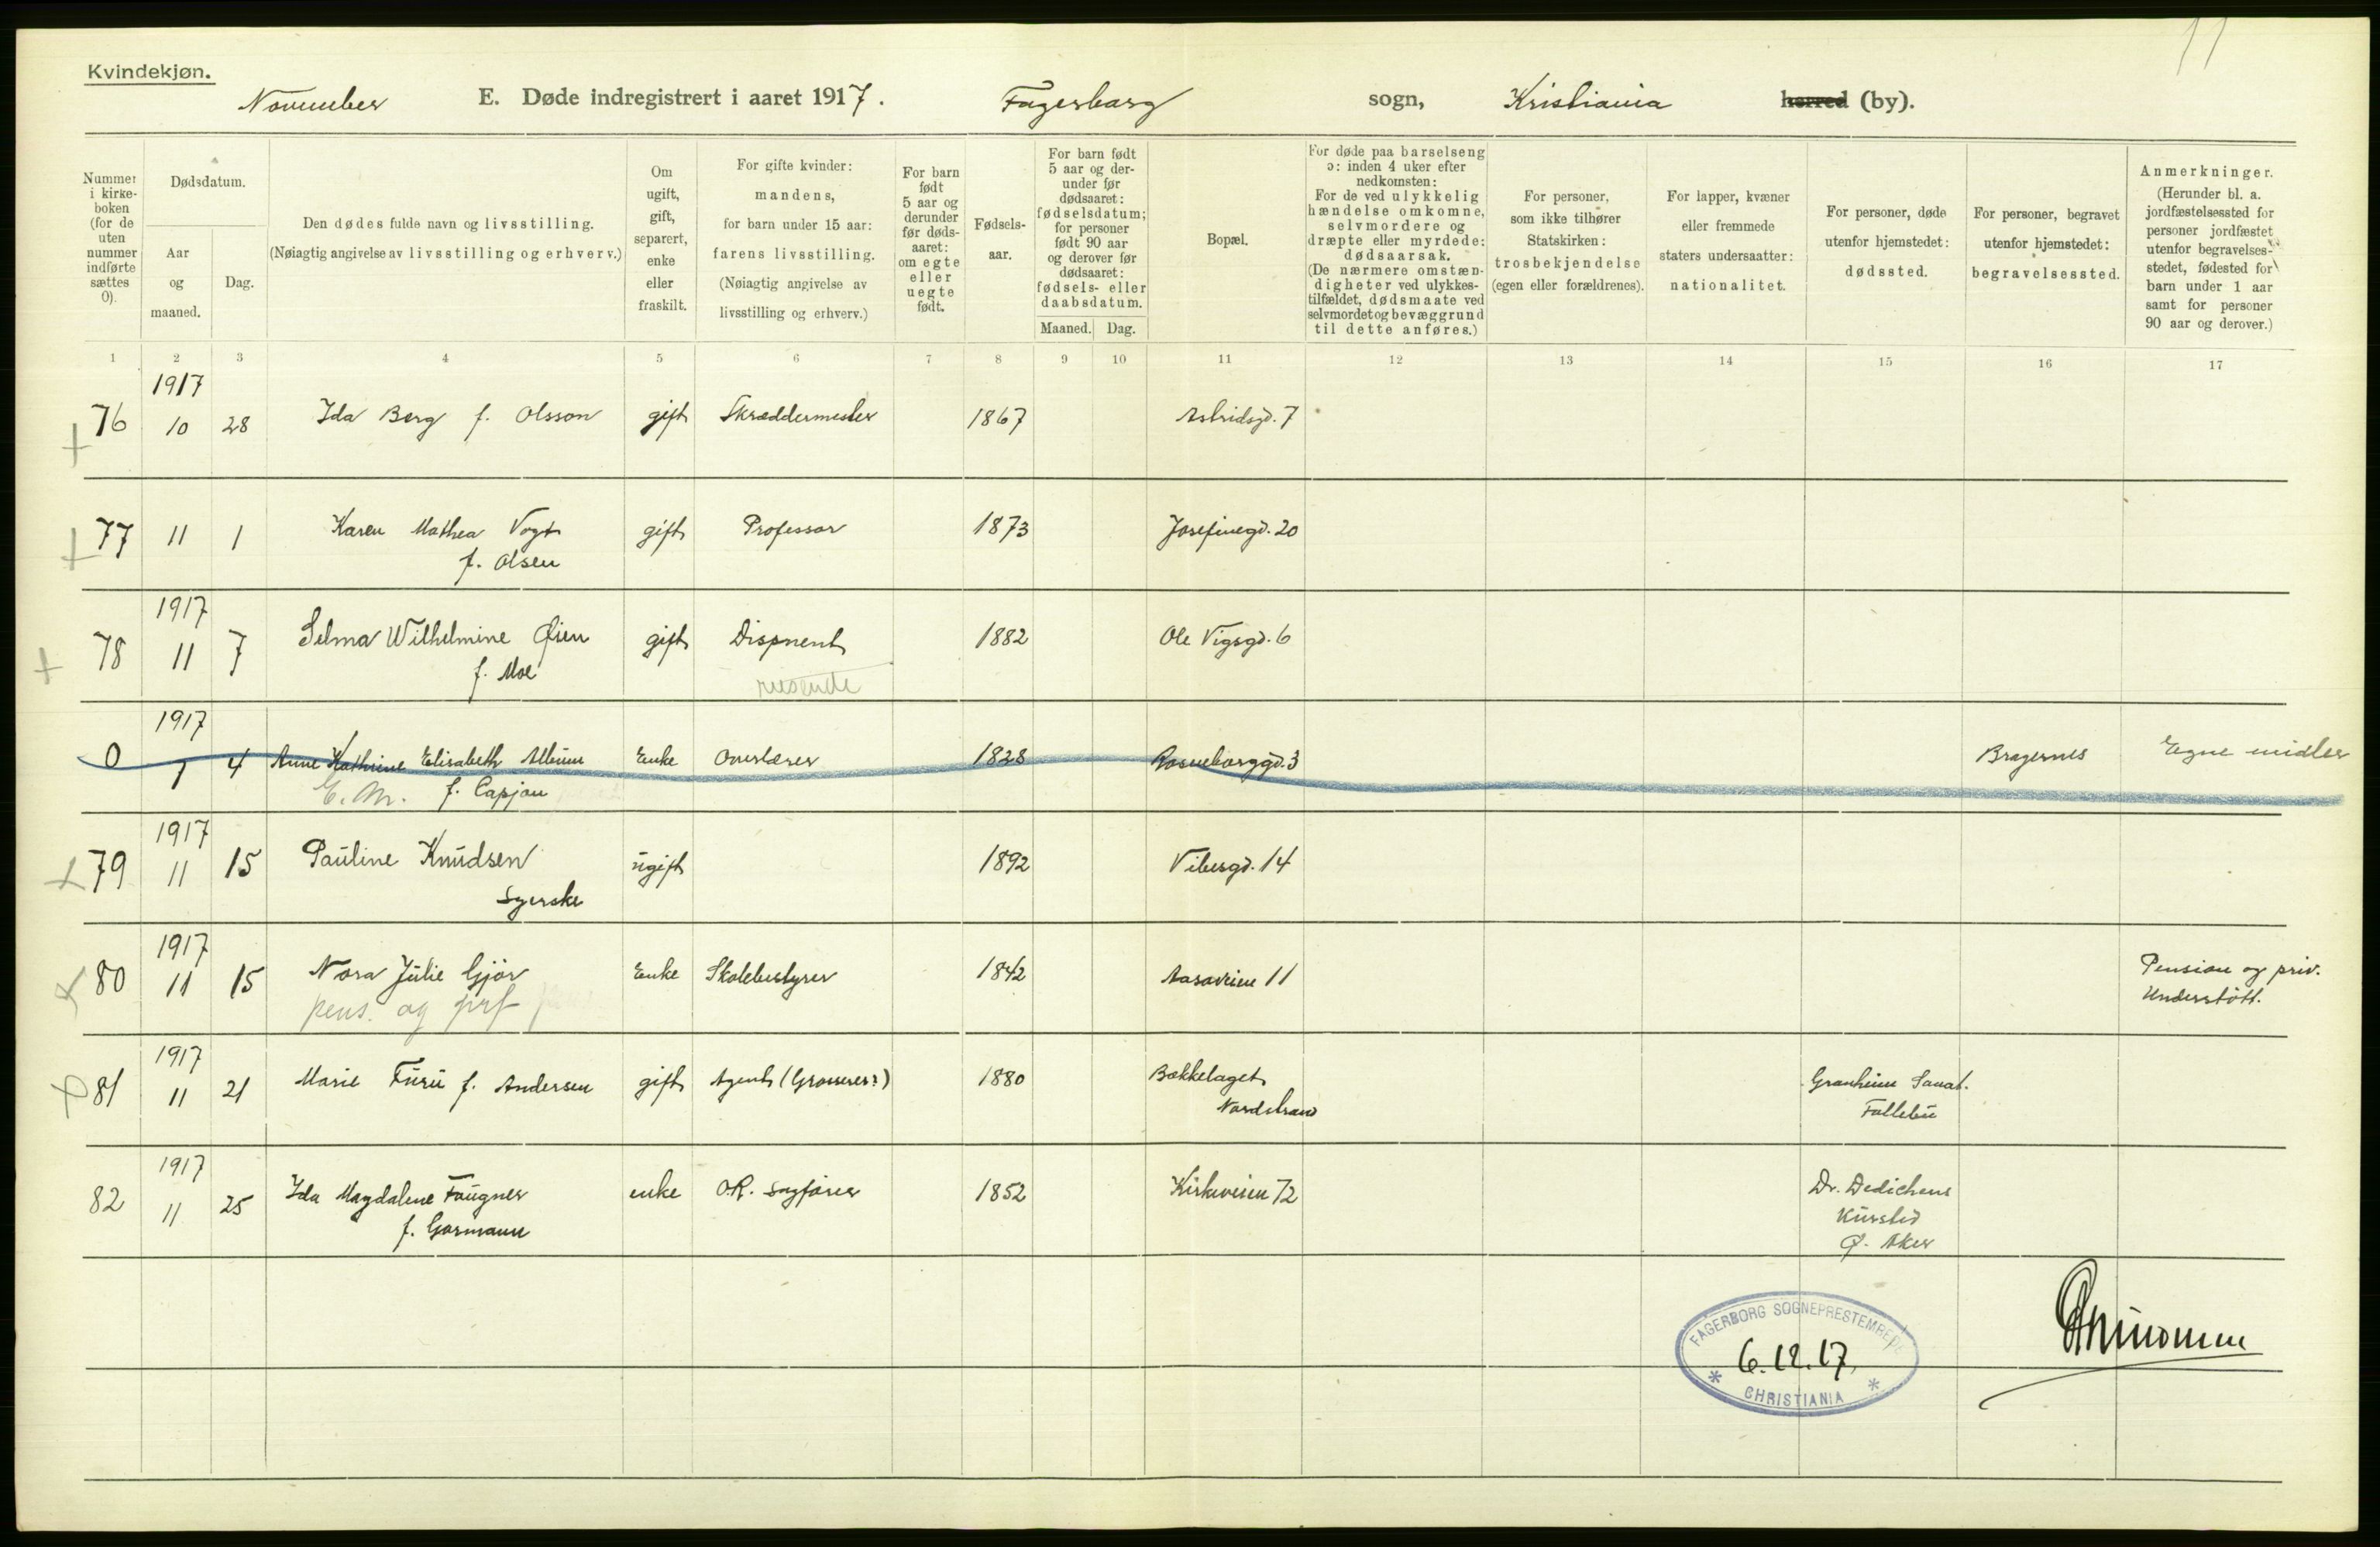 11
Kvindekjøn.
November E. Døde indregistrert i aaret 1917. Fagerborg sogn, Kristiania herred (by).
Nummer i kirke-boken (for de uten nummer indførte sættes 0).
Dødsdatum.
Aar og maaned.
Dag.
Den dødes fulde navn og livsstilling.
(Nøiagtig angivelse av livsstilling og erhverv.)
Om ugift, gift, separert, enke eller fraskilt.
For gifte kvinder: mandens, for barn under 15 aar: farens livsstilling. (Nøiagtig angivelse av livsstilling og erhverv.)
For barn født 5 aar og derunder før døds-aaret: om egte eller uegte født.
Fødsels-aar.
For barn født 5 aar og der-under før dødsaaret: fødselsdatum; for personer født 90 aar og derover før dødsaaret: fødsels- eller daabsdatum.
Maaned. Dag.
Bopæl.
For døde paa barselseng ɔ: inden 4 uker efter nedkomsten: For de ved ulykkelig hændelse omkomne, selvmordere og dræpte eller myrdede: dødsaarsak. (De nærmere omstæn-digheter ved ulykkes-tilfældet, dødsmaate ved selvmordet og bevæggrund til dette anføres.)
For personer, som ikke tilhører Statskirken: trosbekjendelse (egen eller forældrenes).
For lapper, kvæner eller fremmede staters undersaatter: nationalitet.
For personer, døde utenfor hjemstedet: dødssted.
For personer, begravet utenfor hjemstedet: begravelsessted.
Anmerkninger. (Herunder bl. a. jordfæstelsessted for personer jordfæstet utenfor begravelses-stedet, fødested for barn under 1 aar samt for personer 90 aar og derover.)
1 2 3 4 5 6 7 8 9 10 11 12 13 14 15 16 17
1917
76 10 28 Ida Berg f. Olsson gift Skræddermester 1867 Astridsgd. 7
77 11 1 Karen Mathea Vogt gift Professor 1873 Josefinegd. 20
f. Olsen
1917
78 11 7 Selma Wilhelmine Øien gift Dispnent 1882 Ole Vigsgd. 6
f. Moe reisende
1917
0 1 4 Anne Kathrine Elisabeth Album Enke Overlærer 1828 Rosenborggd. 3 Bragernes Egne midler
E. m. f. Capjon
1917
79 11 15 Pauline Knudsen ugift 1892 Vibesgd. 14
Syerske
1917
80 11 15 Nora Julie Gjør Enke Skolebestyrer 1842 Aasaveien 11 Pension og priv.
pens. og prf Understøtt.
1917
81 11 21 Marie Furu f. Andersen gift Agent (Grosserer?) 1880 Bækkelaget Granheim Sanat.
Nordstrand Follebu
1917
82 11 25 Ida Magdalene Faugner enke O.R. Sagfører 1852 Kirkeveien 72 Dr. Dedichens
f. Gormann Kursted
Ø. Aker
FAGERBORG SOGNEPRESTEMBEDE
6.12.17.
CHRISTIANIA